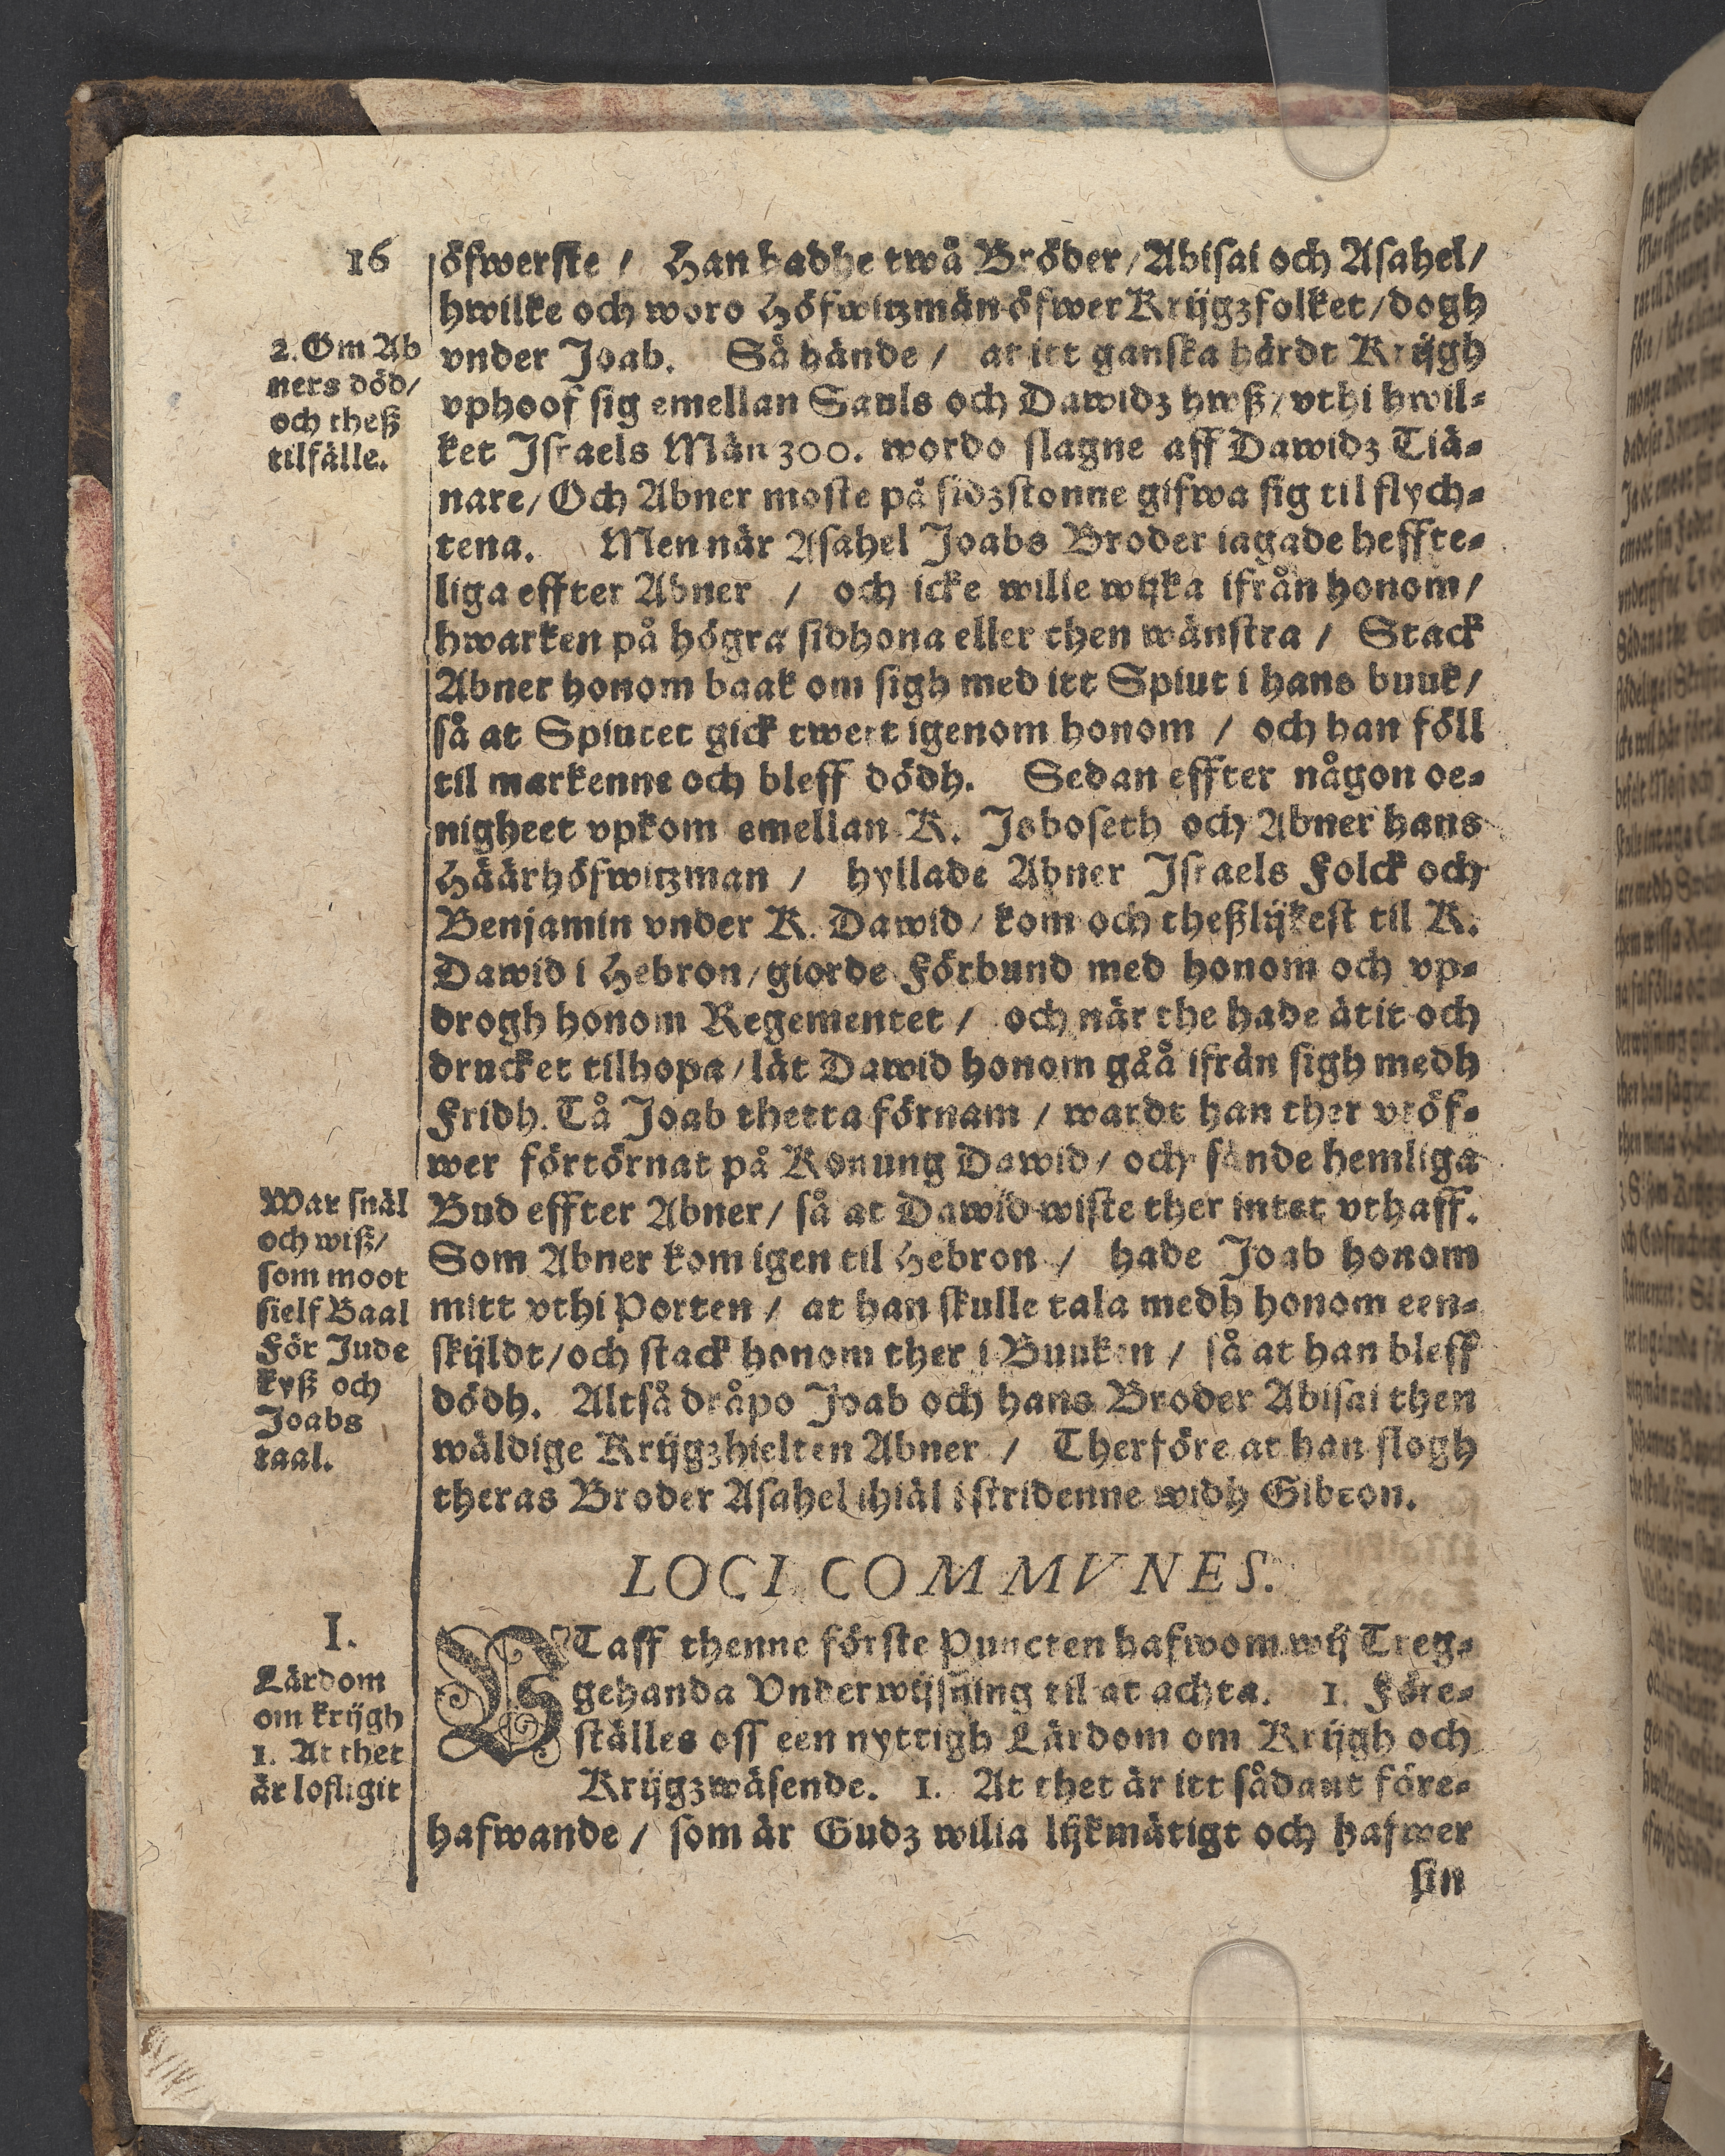 16
öfwerste / Han hadhe twå Bröder / Abisai och Asahel /
hwilke och woro Höfwitzmän öfwer Krijgzfolket / dogh
vnder Joab. Så hände / at itt ganska hårdt Krijgh
vphoof sig emellan Sauls och Dawidz hwß / vthi hwil-
ket Israels Män 300. wordo slagne aff Dawidz Tiä-
nare / Och Abner moste på sidzstonne gifwa sig til flych-
tena. Men när Asahel Joabs Broder iagade heffte-
liga effter Abner / och icke wille wijka ifrån honom /
hwarken på högra sidhona eller then wänstra / Stack
Abner honom baak om sigh med itt Spiut i hans buuk /
så at Spiutet gick twert igenom honom / och han föll
til markenne och bleff dödh. Sedan effter någon oe-
nigheet vpkom emellan K. Isboseth och Abner hans
Häärhöfwitzman / hyllade Abner Israels Folck och
Benjamin vnder K. Dawid / kom och theßlijkest til K.
Dawid i Hebron / giorde Förbund med honom och vp-
drogh honom Regementet / och när the hade ätit och
drucket tilhopa / lät Dawid honom gåå ifrån sigh medh
Fridh. Tå Joab thetta förnam / wardt han ther vtöf-
wer förtörnat på Konung Dawid / och sände hemliga
Bud effter Abner / så at Dawid wiste ther intet vthaff.
Som Abner kom igen til Hebron / hade Joab honom
mitt vthi Porten / at han skulle tala medh honom een-
skijldt / och stack honom ther i Buuken / så at han bleff
dödh. Altså dråpo Joab och hans Broder Abisai then
wäldige Krijgzhielten Abner / Therföre at han slogh
theras Broder Asahel ihiäl i stridenne widh Gibeon.
2. Om Ab
ners död /
och theß
tilfälle.
War snäl
och wiß /
som moot
sielf Baal
För Jude
kyß och
Joabs
taal.
LOCI COMMVNES.
VTaff thenne förste Puncten hafwom wij Treg-
gehanda Vnderwijsning til at achta. 1. Före-
ställes oss een nyttigh Lärdom om Krijgh och
Krijgzwäsende. 1. At thet är itt sådant före-
hafwande / som är Gudz wilia lijkmätigt och hafwer
sin
I.
Lärdom
om krijgh
1. At thet
är lofligit